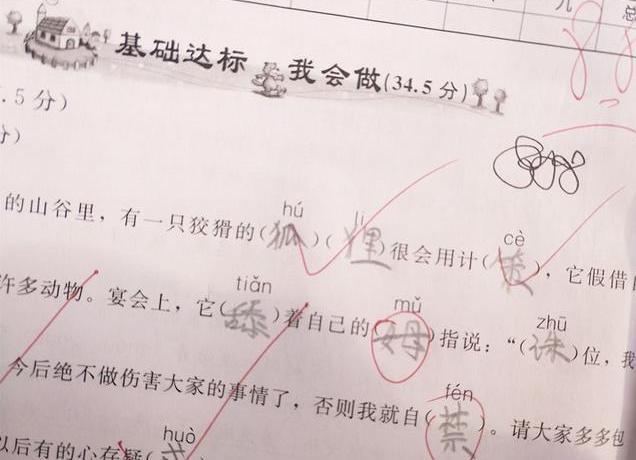 九 总
基础达标 我会做(34.5分)
.5分)
分)
hú lí cè
的山谷里，有一只狡猾的(狐)(狸)很会用计(策)，它假借
tiǎn mǔ zhū
许多动物。宴会上，它(舔)着自己的(姆)指说：“(诛)位，我
fén
今后绝不做伤害大家的事情了，否则我就自(禁)。请大家多多包
huò
以后有的心存疑(